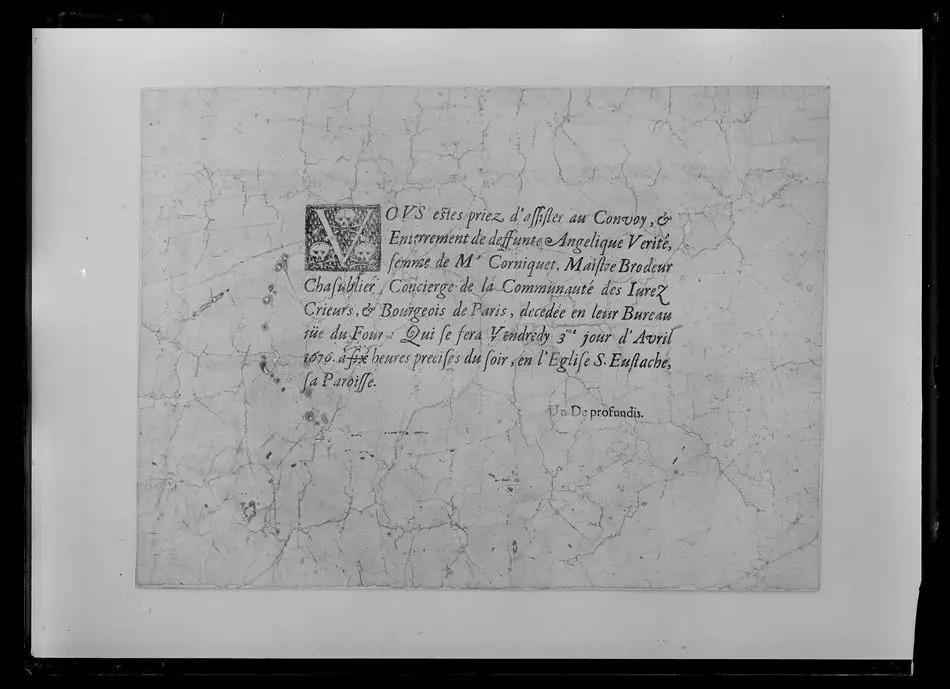 VOVS estes priez d'assister au Convoy, &
Enterrement de deffunte Angelique Verité,
femme de Mr Corniquet, Maistre Brodeur
Chasublier, Concierge de la Communauté des Iurez
Crieurs, & Bourgeois de Paris, decedée en leur Bureau
rüe du Four: Qui se fera Vendredy 3me jour d'Avril
1676. à six heures precises du soir, en l'Eglise S. Eustache,
sa Paroisse.
Un De profundis.